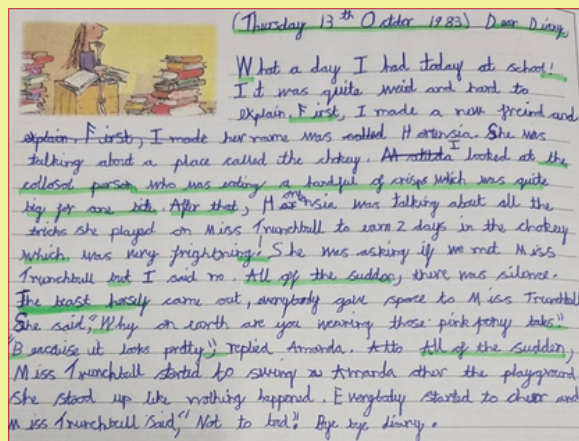 (Thursday 13th Octder 1983) Dear Diary,
What a day I had today at school!
It was quite weid and hard to
explain. First, I made a new freind and
explain. First, I made her name was called Hortensia. She was
talking about a place called the chokey. I looked at the
collosol person who was eating a handful of crisps which was quite
big for one bite. After that, Hortonsia was talking about all the
tricks she played on Miss Trunchbull to earn 2 days in the chokey
which was very frightning! She was asking if we met Miss
Trunchbull but I said no. All of the sudden, there was silence.
The beast herself came out, everybody gave space to Miss Trunchbull
She said, "Why on earth are you wearing those pink pony tails."
"Becaduse it looks pretty", replied Amanda. All of the sudden,
Miss Trunchbull started to swing Amanda other the playground
She stood up like nothing happened. Everybody started to cheer and
Miss Trunchbull said, "Not to bad". Bye bye diary.